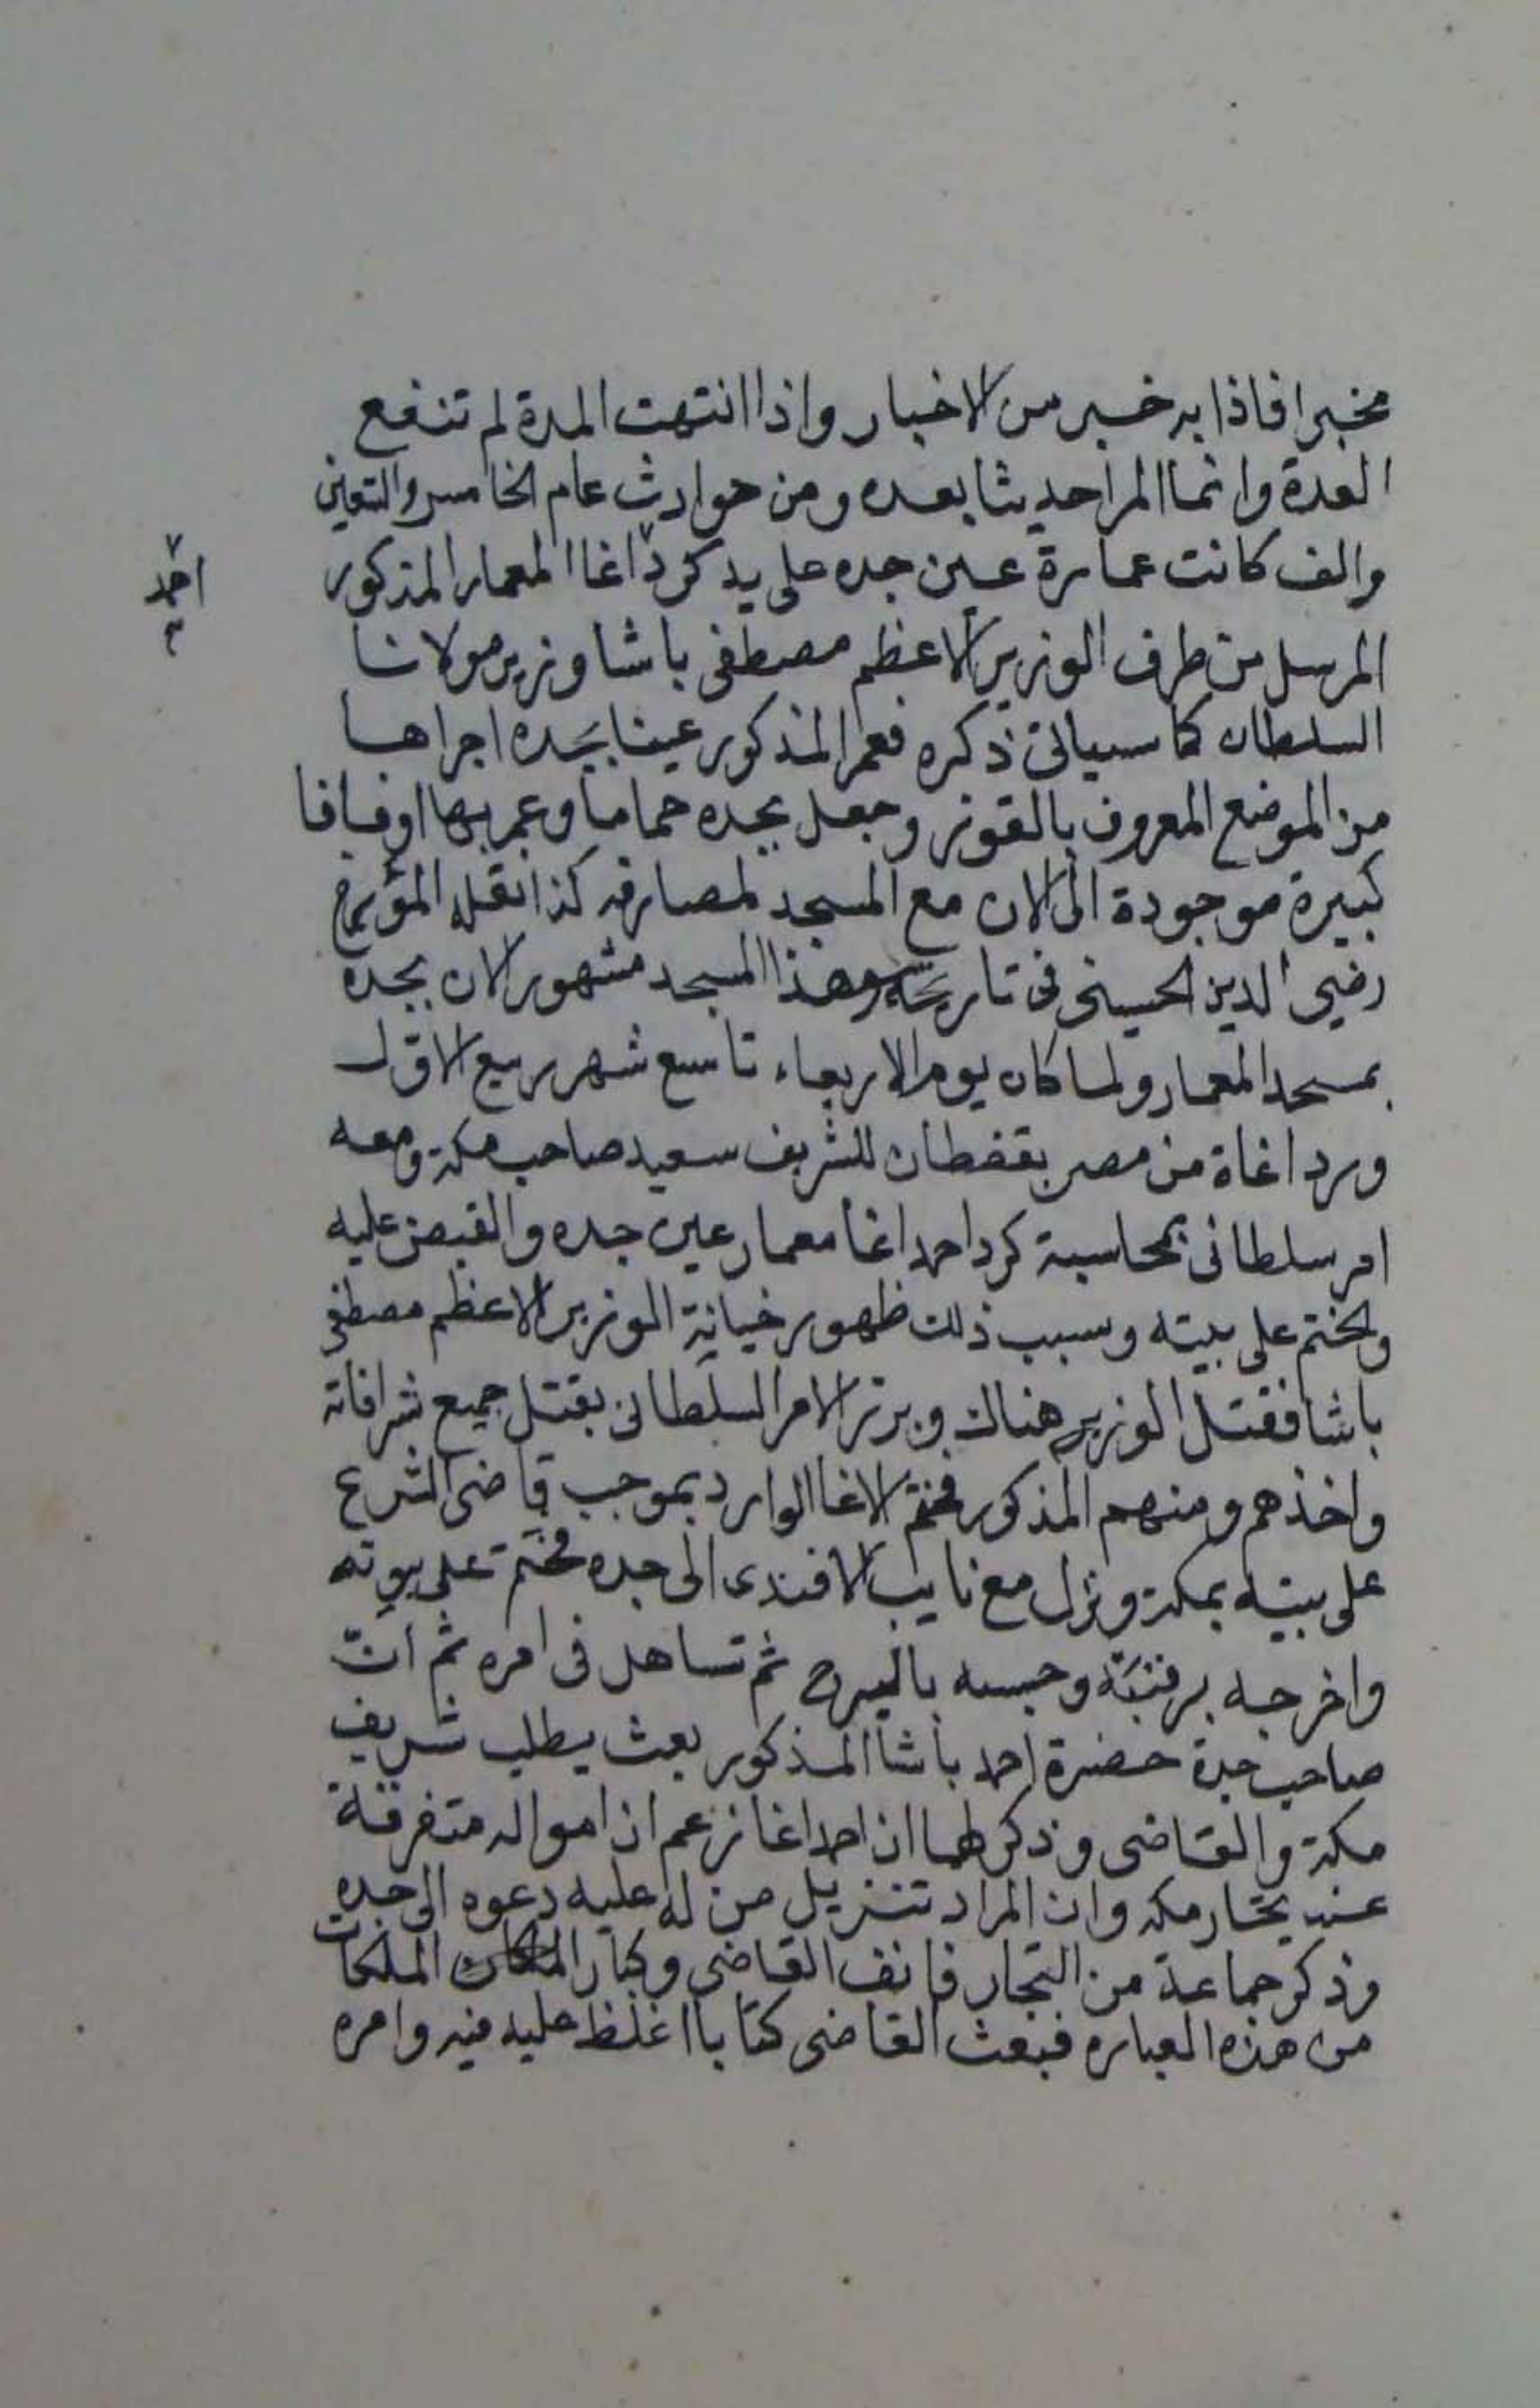 مخبرا فاذا به خبر من الاخبار واذا انتهت المدة لم تنفع
العدة وانما المرا حديثا بعده ومن حوادث عام الخامس والتعين
والف كانت عمارة عين جده على يد كرد اغا المعمار المذكور
احمد
المرسل من طرف الوزير الاعظم مصطفى باشا وزير مولانا
السلطان كما سياتى ذكره فعمر المذكور عينا بجده اجراها
من الموضع المعروف بالقوز وجعل بجده حماما وعمر بها اوقافا
كبيرة موجودة الى الان مع المسجد لمصارفه كذا نقله المؤرخ
رضي الدين الحسينى فى تاريخه وهذا المسجد مشهور الان بجده
بمسجد المعمار ولما كان يوم الاربعاء تاسع شهر ربيع الاول
ورد اغاة من مصر بقفطان للشريف سعيد صاحب مكة ومعه
امر سلطانى بمحاسبة كرد احمد اغا معمار عين جده والقبض عليه
والختم على بيته وسبب ذلك ظهور خيانة الوزير الاعظم مصطفى
باشا فقتل الوزير هناك وبرز الامر السلطانى بقتل جميع شرافاته
واخذهم ومنهم المذكور فختم الاغا الوارد بموجب قاضى الشرع
على بيته بمكة ونزل مع نايب الافندى الى جده فختم على بيوته
واخرجه برقبته وحبسه ثم تساهل فى امره ثم ان
صاحب جدة حضرة احمد باشا المذكور بعث يطلب شريف
مكة والقاضى وذكر لهما ان احمد اغا زعم ان امواله متفرقة
عند تجار مكه وان المراد تنزيل من له عليه دعوه الى جده
وذكر جماعة من التجار فانف القاضى وكبار
من هذه العباره فبعث القاضى كتابا اغلظ عليه فيه وامره